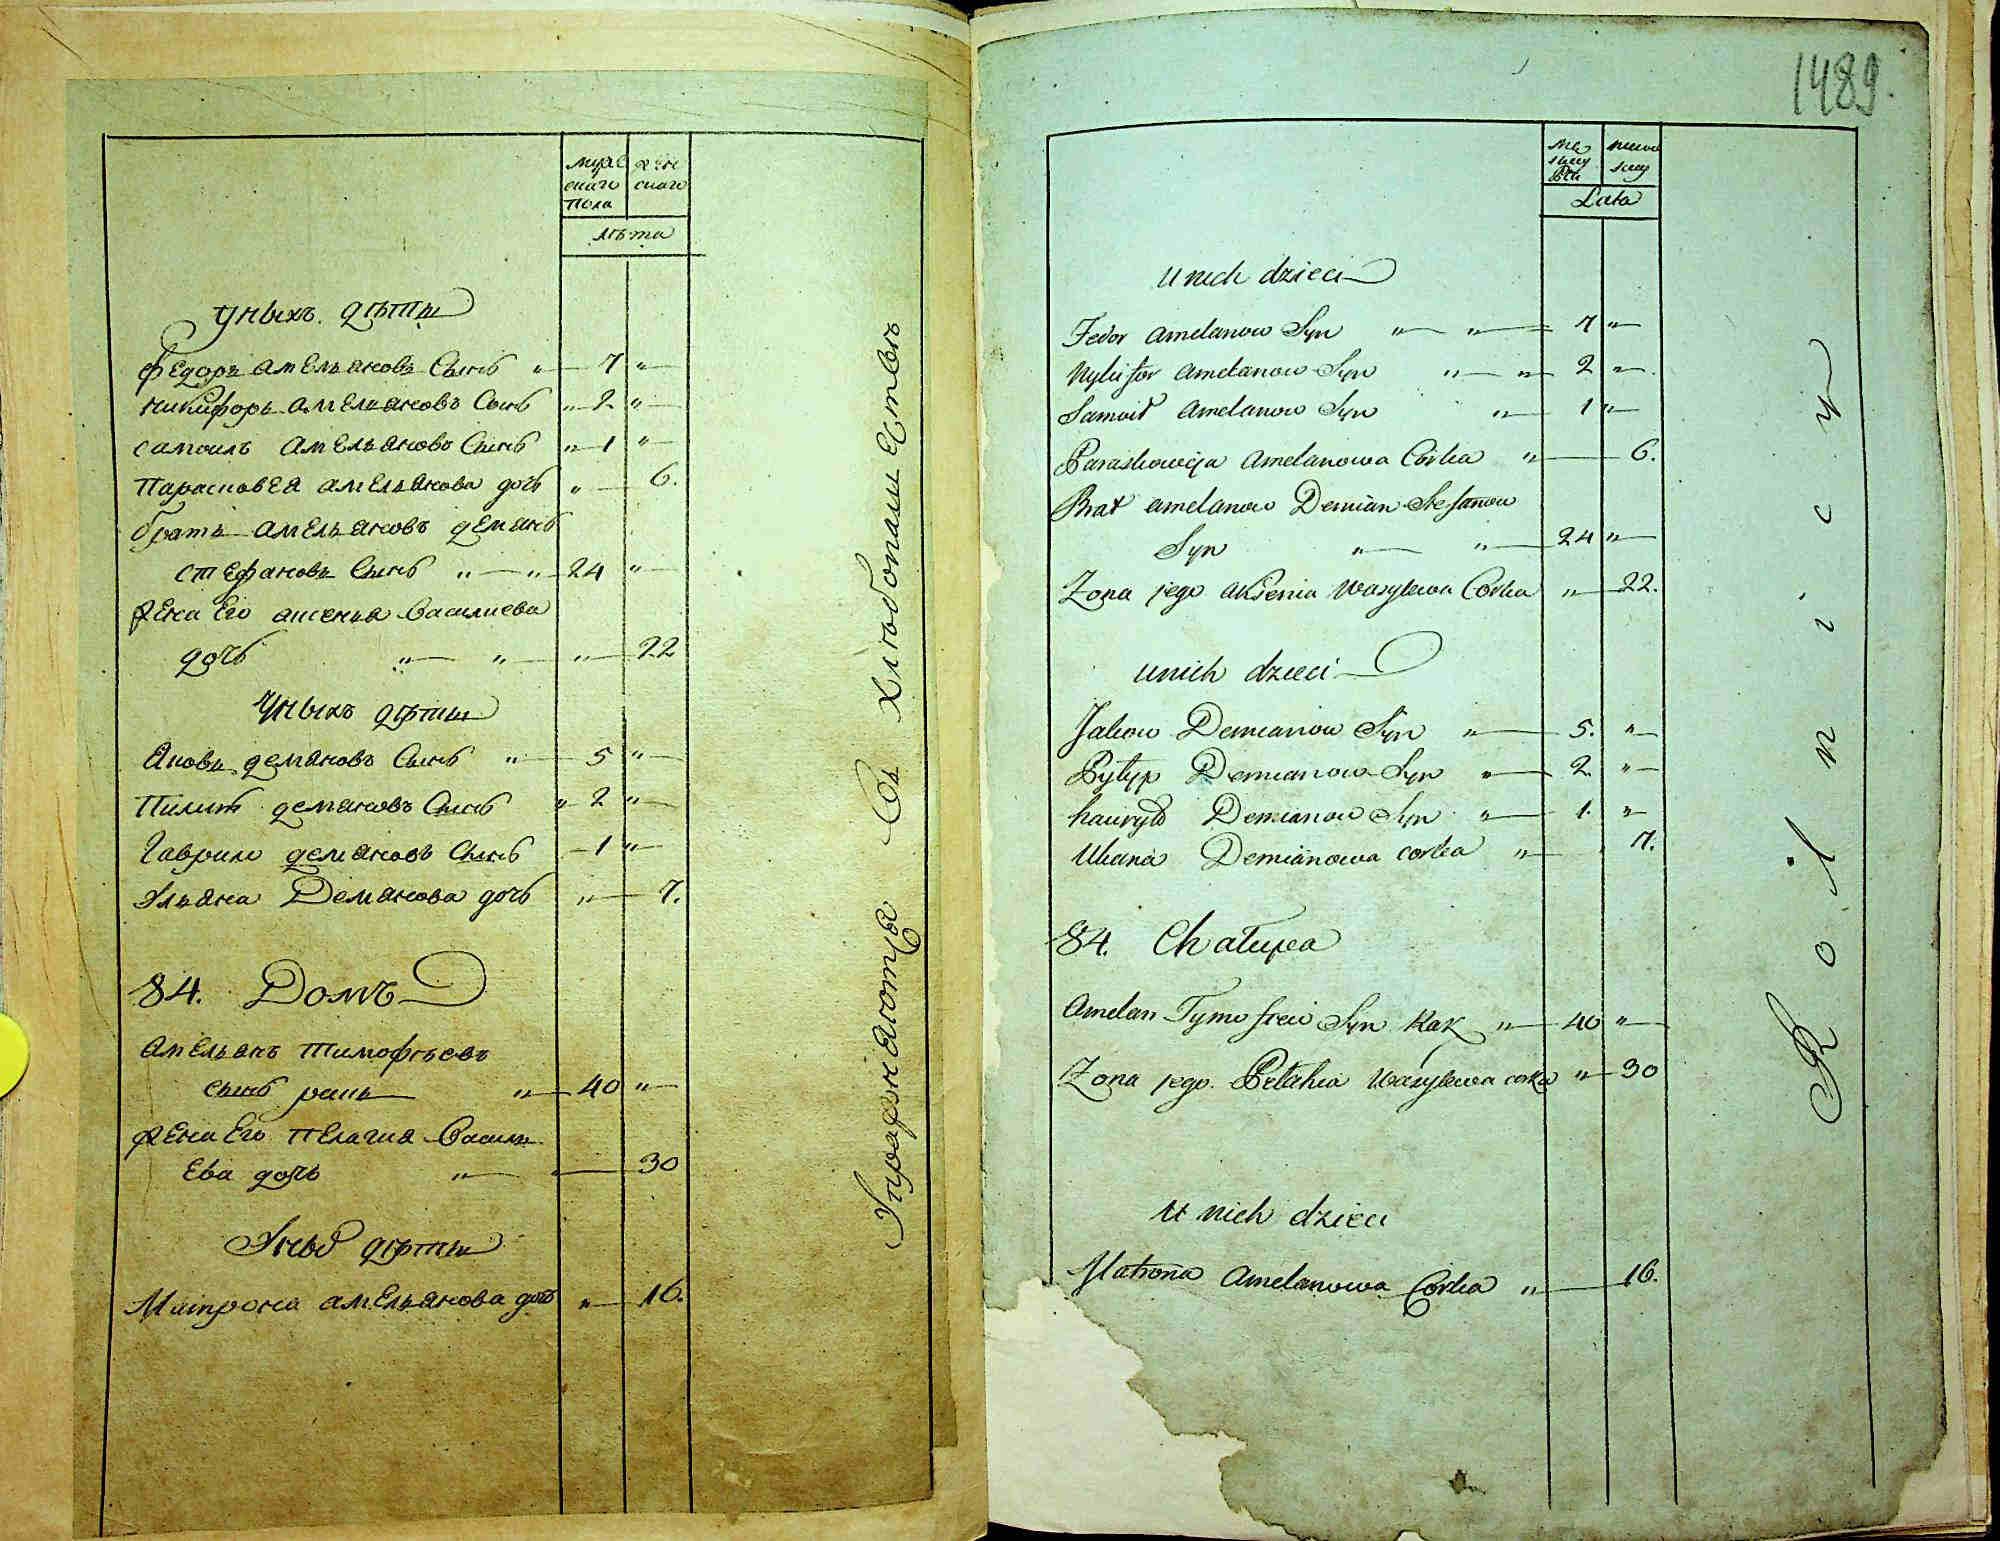 мужескаго пола
женскаго
лѣта
у ныхъ дѣти
Федоръ Амельяновъ Сынъ " 7 "
Никифоръ Амельяновъ Сынъ " 2 "
Самоилъ Амельяновъ Сынъ " 1 "
Парасковея Амельянова дочь " 6.
братъ Амельяновъ Демянъ
Стефановъ Сынъ " " 24 "
Жена Его Аксенья Василиева
дочь " " " 22
У ныхъ дѣти
Яковъ Демяновъ Сынъ " 5 "
Пилипъ Демяновъ Сынъ " 2 "
Гаврило Демяновъ Сынъ 1 "
Ульяна Демянова дочь " 7.
84. Домъ
Амельянъ Тимофѣевъ
сынъ ракъ " 40 "
Жена Его Пелагия Василь
Ева дочь " 30
У ныхъ дѣти
Матрона Амельянова дочь " 16.
Упражняютца Въ хлѣбопашествѣ
1489.
Lata
U nich dzieci
Fedor Amelanow Syn " " 7 "
Nykifor Amelanow Syn " " 2 "
Samoił Amelanow Syn " 1 "
Paraskowija Amelanowa Corka " 6.
Brat Amelanow Demian Stefanow
Syn " " 24 "
Zona jego Aksenia Wasylewa Corka " 22.
U nich dzieci
Jakow Demianow Syn " 5. "
Pyłyp Demianow Syn " 2. "
Hawryło Demianow Syn " 1. "
Uliana Demianowa corka " 7.
84. Chałupa
Amelan Tymofieiw Syn Rak " 40 "
Zona jego Pelahia Wasylewa corka " 30
U nich dzieci
Matrona Amelanowa Corka " 16.
Rolnicy